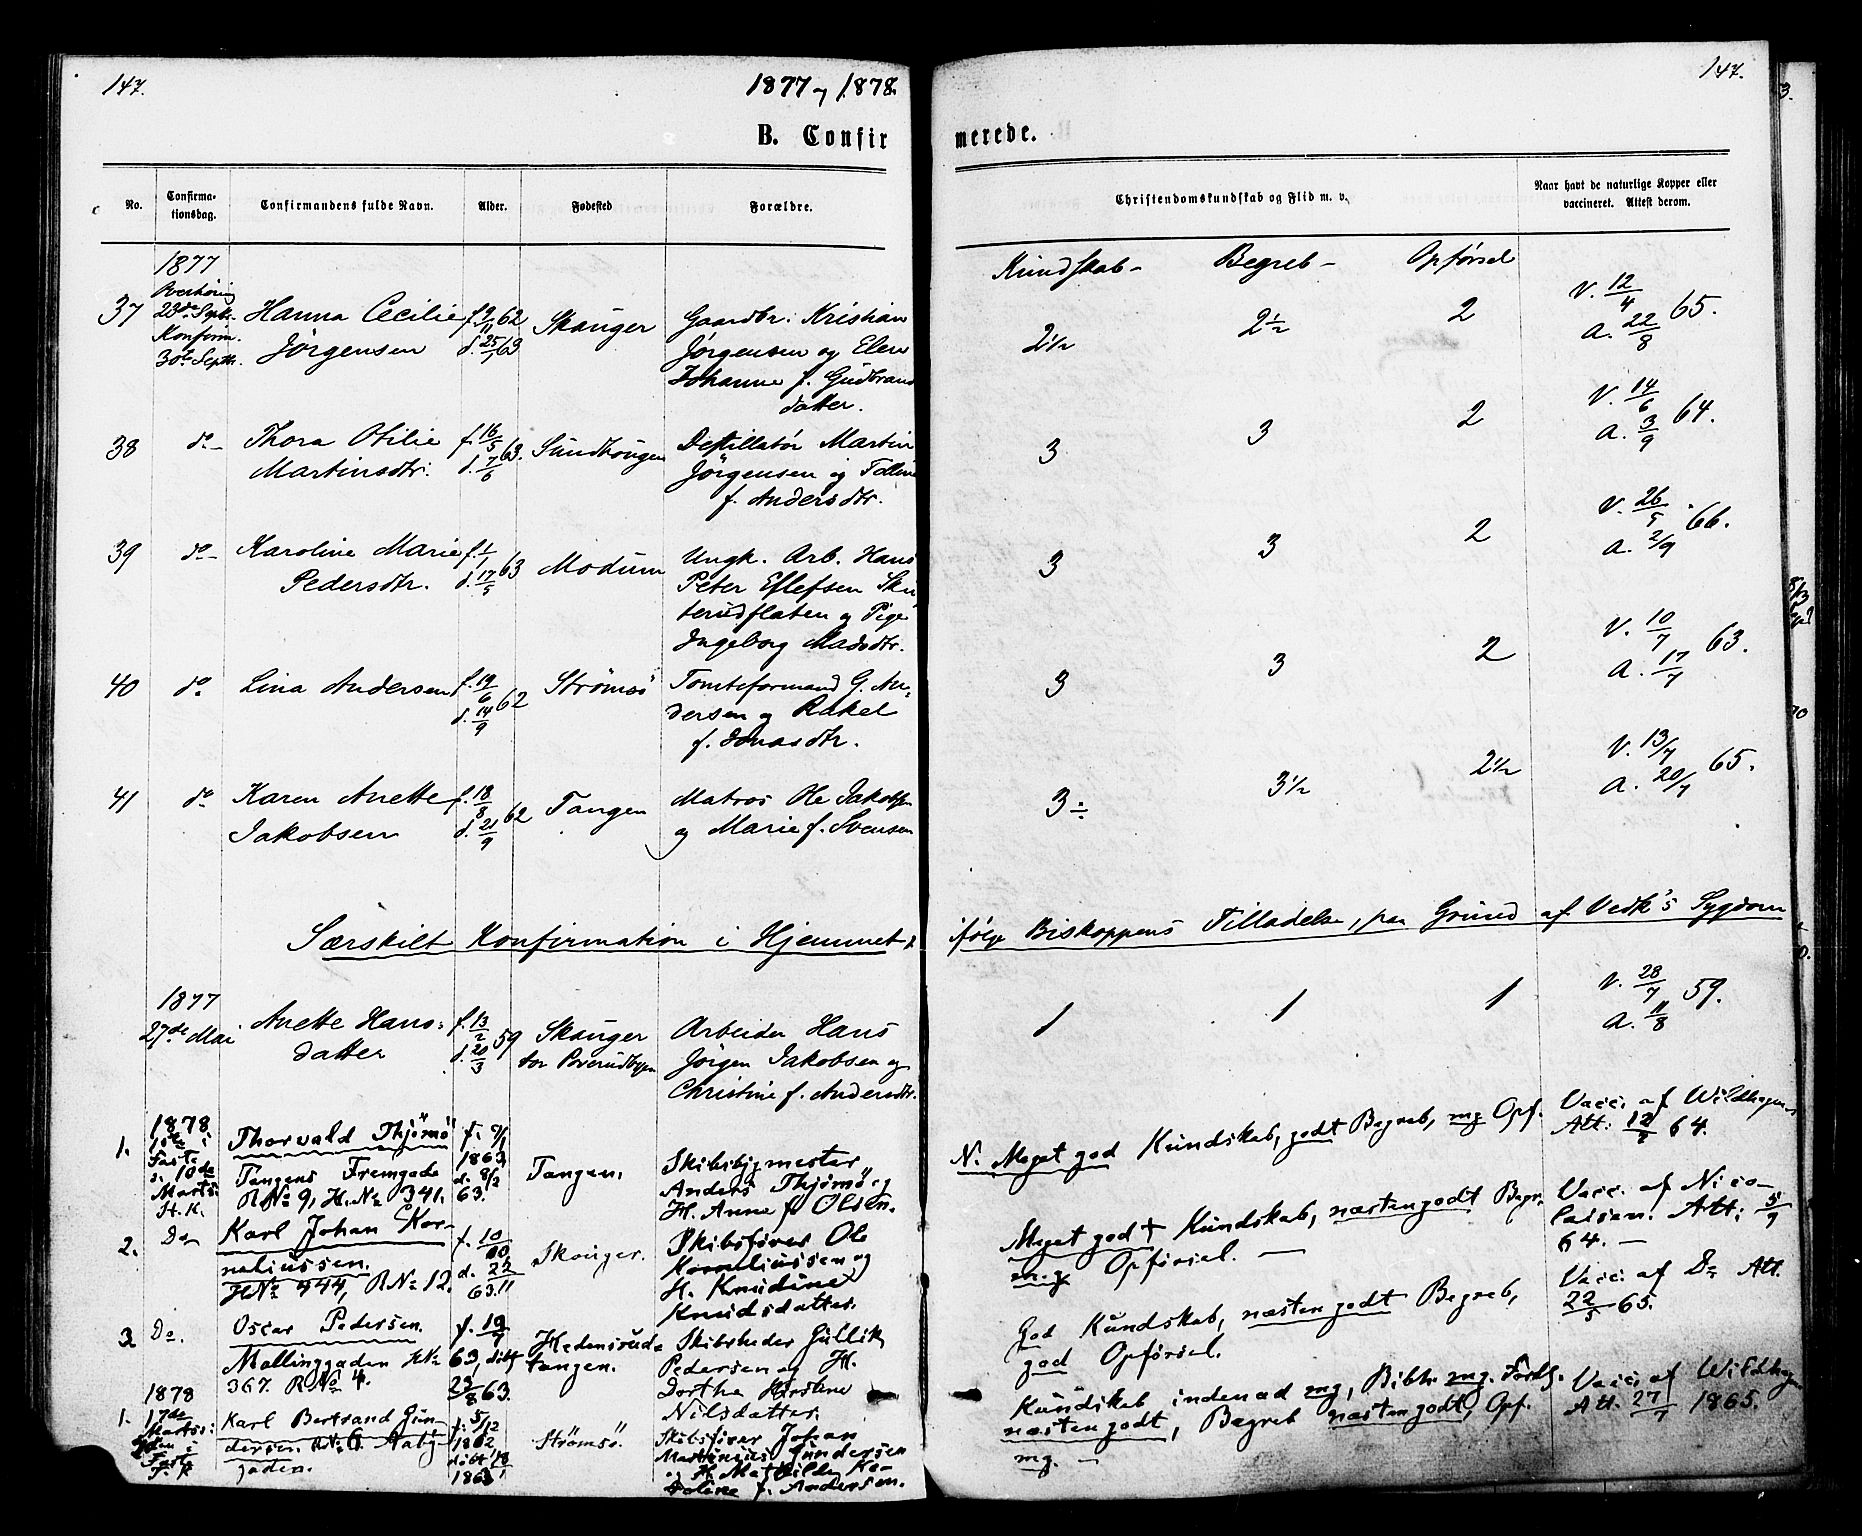 147.
1877 og 1878.
147.
B. Confirmerede.
No.
Confirma-
tionsdag.
Confirmandens fulde Navn.
Alder.
Fødested
Forældre.
Christendomskundskab og Flid m. v.
Naar havt de naturlige Kopper eller
vaccineret. Attest derom.
Kundskab - Begreb - Opførsel
1877
Overhøring
23de Sept.
Konfirm.
30te Septr.
37 Hanna Cecilie
Jørgensen
f. 9/11 62
d. 25/1 63
Skouger
Gaardbr. Kristian
Jørgensen og Elen
Johanne f. Gudbrands
datter.
2 1/2 2 1/2 2
V. 12/4
A. 22/8 65.
38 do- Thora Otilie
Martinsdtr.
f. 16/5 63.
d. 7/6
Sundhougen
Destillatør Martin
Jørgensen og
f. Andersdtr.
3 3 2
V. 14/6
A. 3/9 64.
39 do- Karoline Marie
Pedersdtr.
f. 1/1 63
d. 17/5
Modum
Ungk. Arb. Hans
Peter Ellefsen Sku-
terudflaten og Pige
Ingeborg Madsdtr.
3 3 2
V. 26/5 66.
A. 2/9
40 do Lina Andersen
f. 19/6 62
d. 14/9
Strömsö
Tomteformand G. An-
dersen og Rakel
f. Jonasdtr.
3 3 2
V. 10/7 63.
A. 17/7
41 do Karen Anette
Jakobsen
f. 18/8 62
d. 21/9
Tangen
Matros Ole Jakobsen
og Marie f. Svensen
3 ÷ 3 1/2 2 1/2
V. 13/7 65.
A. 20/7
Særskilt Konfirmation i Hjemmet ifölge Biskoppens Tilladelse, paa Grund af Vedk's Sygdom
1877
27de Mai
Anette Hans-
datter
f. 13/2 59
d. 20/3
Skouger
Arbeider Hans
Jørgen Jakobsen og
Christine f. Andersdtr.
1 1 1
V. 28/7 59.
A. 11/8
1878
1ste i
Faste
d. 10de
Marts.
H.K.
1. Thorvald Thjömö
Tangens Fremgade
R No 9, H. No 341.
1863
63.
Tangen.
Skibsbygmester
Anders Thjömö og
H. Anne f. Olsen.
N. Meget god Kundskab, godt Begreb, mg Opf.
Vacc. af Wildhagen
64.
2. Do Karl Johan Kor-
neliussen.
H No 444, R No 12.
Skouger.
Skibsfører Ole
Korneliussen og
H. Knudine
Knudsdatter.
Meget god + Kundskab, næsten godt Begr.
mg Opførsel. —
Vacc. af Nico-
laisen. Att: 5/9
64. —
3 Do. Oscar Pedersen.
Mollinggaden H No
367. R No 4.
f. 19/7
63, döbt
23/8 63.
Hedensruds
tangen.
Skibsreder Gullik
Pedersen og H.
Dorthe Kirstine
Nilsdatter.
God Kundskab, næsten godt Begreb,
god Opførsel.
Vacc. af Do Att.
22/5 65.
1878
17de
Marts:
i
Faste
1. Karl Bertrand Gun-
dersen. R No 6 Aaby-
gaden.
f. 5/12
1862
döbt
1863
Strömsö.
Skibsfører Johan
Martinius Gundersen
og H. Mathilde Ka-
roline f. Andersen.
Kundskab indenad mg, Bibh. mg. Forklg.
næsten godt, Begreb næsten godt, Opf.
mg. —
Vacc. af Wildhagen
Att. 27/7 1865.